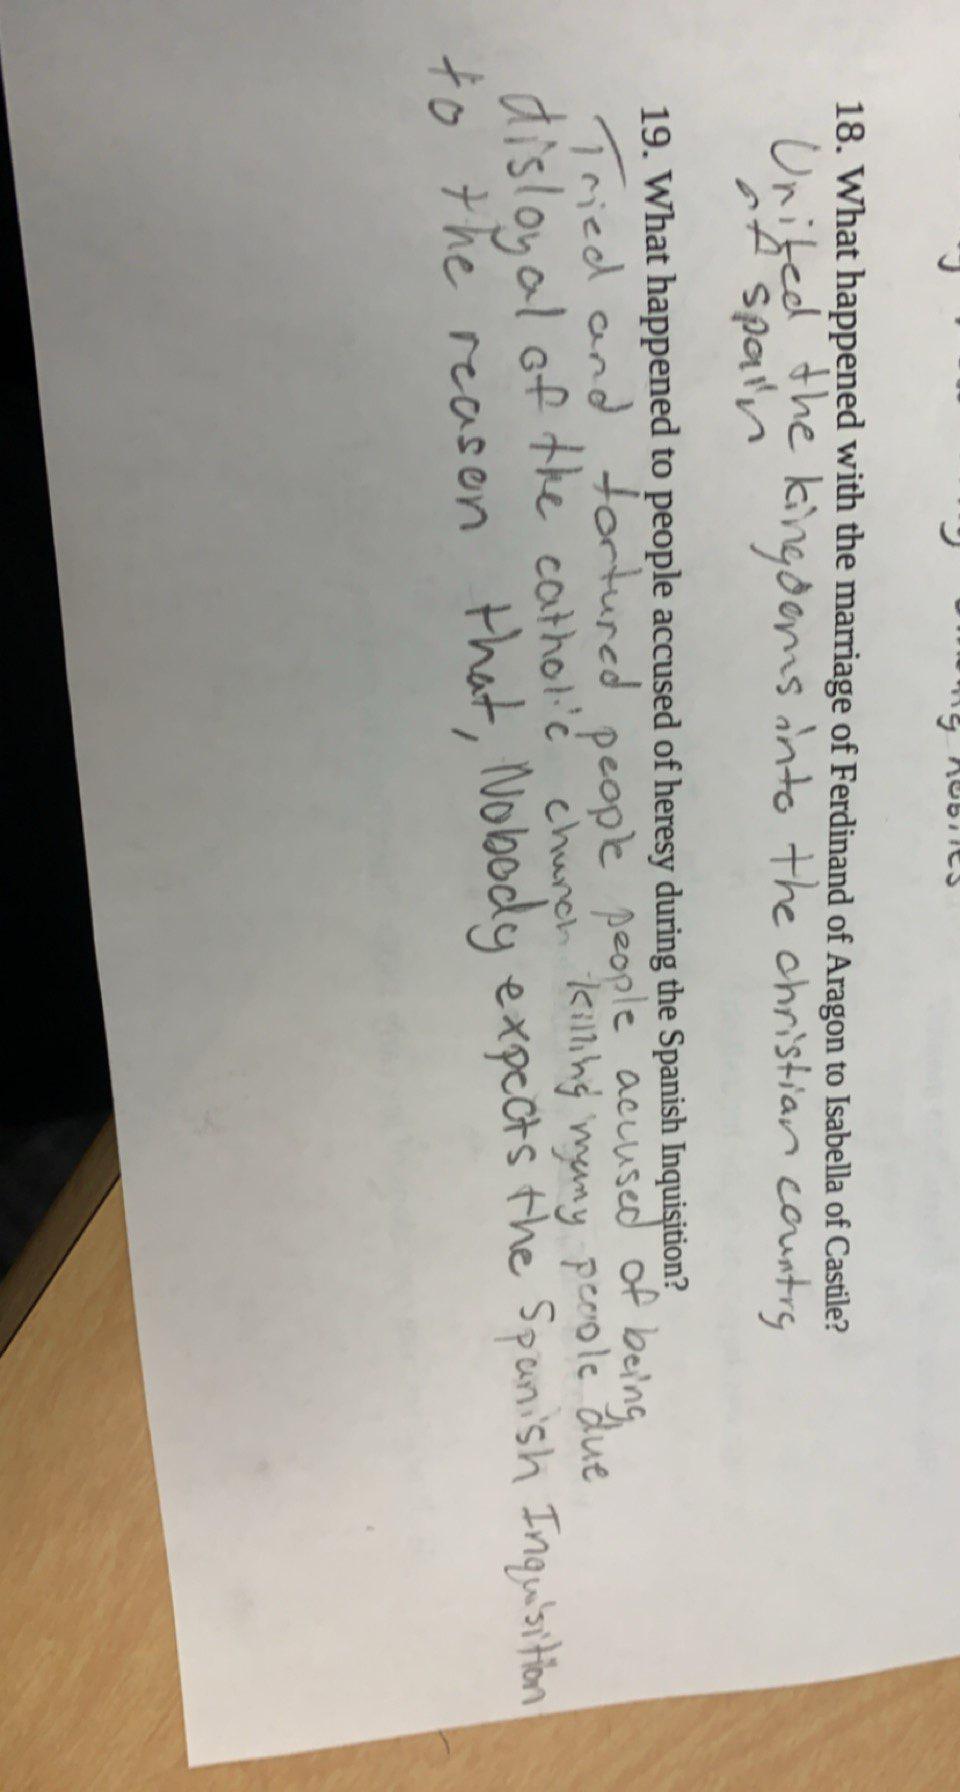 18. What happened with the marriage of Ferdinand of Aragon to Isabella of Castile?
United the kingdoms into the christian country
of spain
19. What happened to people accused of heresy during the Spanish Inquisition?
Tried and tortured people people accused of being
disloyal of the catholic church killing many people due
to the reason that, Nobody expects the Spanish Inquisition